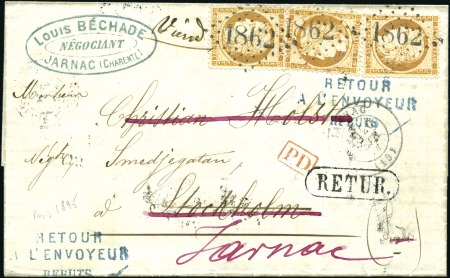 LOUIS BÉCHADE
NÉGOCIANT
JARNAC (CHARENTE)
1862 1862 1862
RETOUR
A L'ENVOYEUR
REBUTS
Monsieur
Christian Holst
PD
(15)
RETUR.
Négt
Smedjegatan
à Stockholm
Jarnac
RETOUR
A L'ENVOYEUR
REBUTS